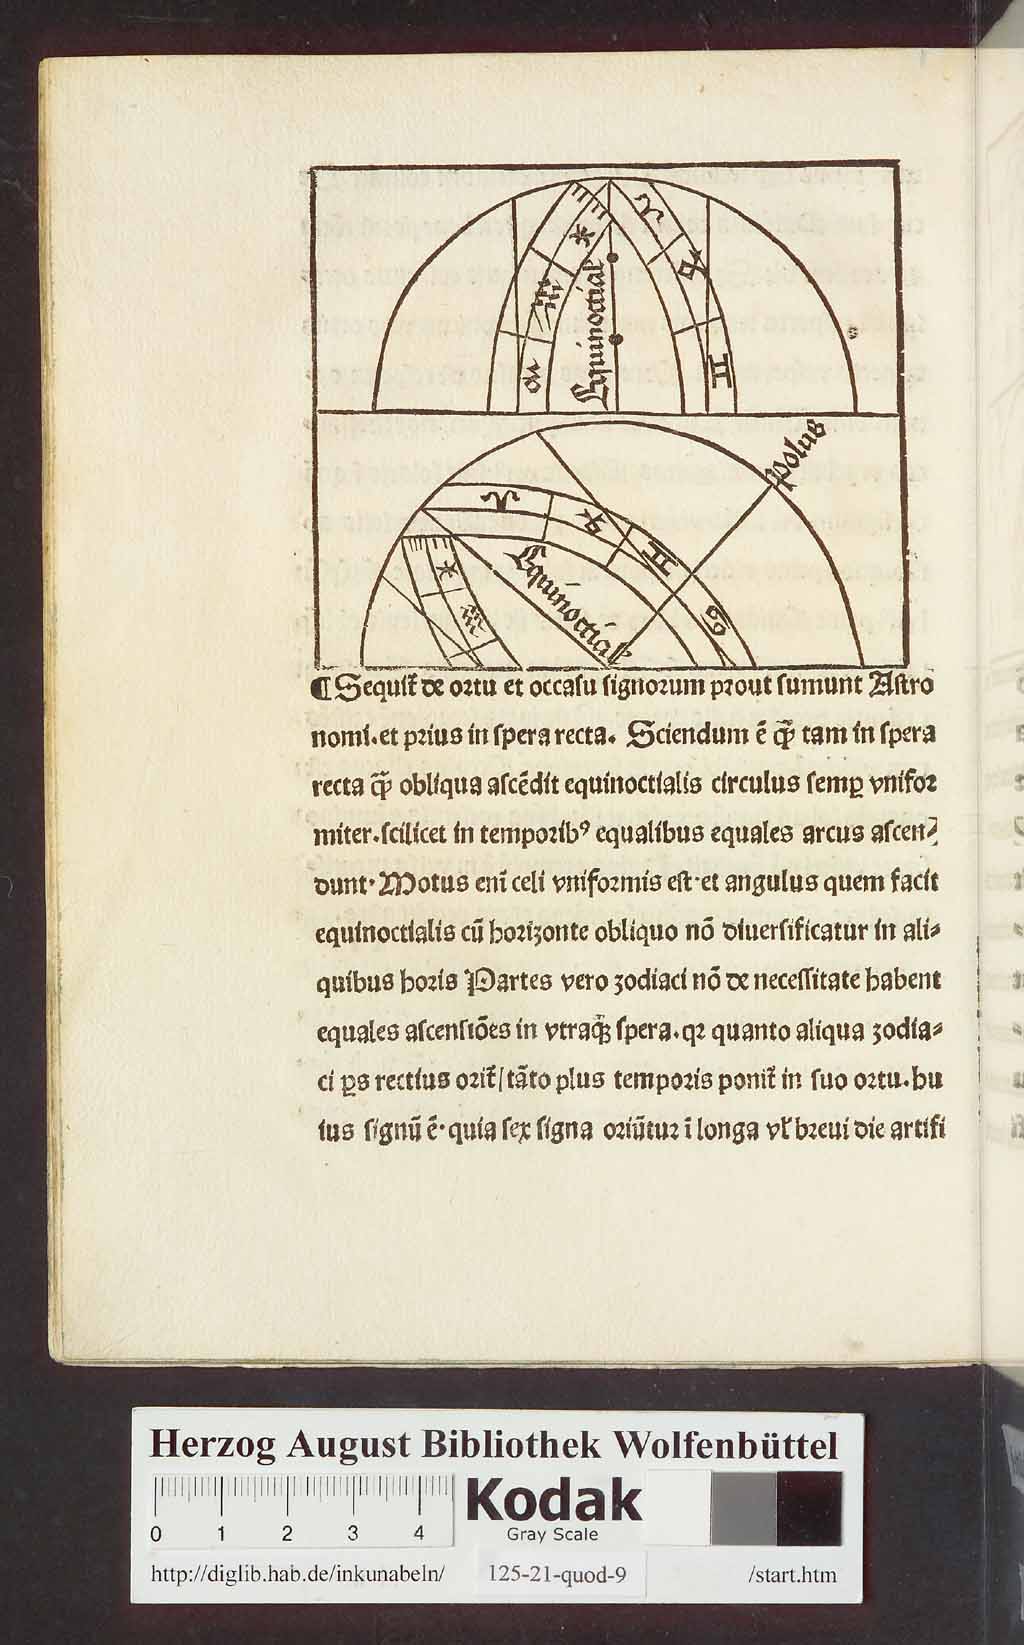 Equinoctial
polus
Equinoctial
¶ Sequit̃ de ortu et occasu signorum prout sumunt Astro
nomi.et prius in spera recta. Sciendum ē ꝙ̃ tam in spera
recta ꝙ̃ obliqua ascēdit equinoctialis circulus semꝑ vnifor
miter.scilicet in temporibꝰ equalibus equales arcus ascen⸗
dunt. Motus enī celi vniformis est.et angulus quem facit
equinoctialis cū horizonte obliquo nō diuersificatur in ali⸗
quibus horis Partes vero zodiaci nō de necessitate habent
equales ascensiōes in vtraqꝫ spera.qꝛ quanto aliqua zodia⸗
ci ꝑs rectius orit̃/tāto plus temporis ponit̃ in suo ortu.hu
ius signū ē.quia sex signa oriūtur ī longa vł breui die artifi
Herzog August Bibliothek Wolfenbüttel
0 1 2 3 4
Kodak
Gray Scale
http://diglib.hab.de/inkunabeln/ 125-21-quod-9 /start.htm